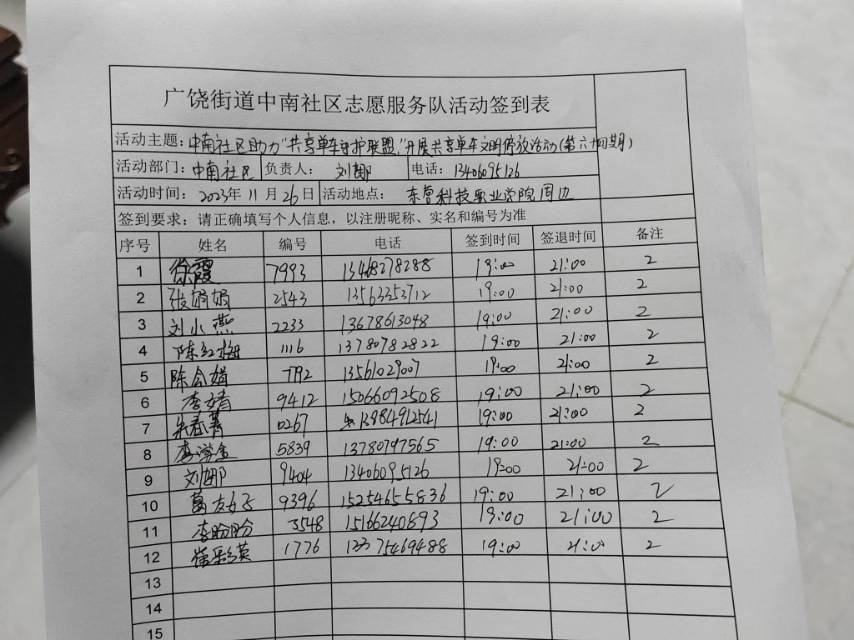 广饶街道中南社区志愿服务队活动签到表
活动主题：中南社区助力“共享单车守护联盟，”开展共享单车文明停放活动(第六十四期)
活动部门：中南社区 负责人： 刘娜 电话：13406095126
活动时间： 2023年 11 月 26 日 活动地点： 东营科技职业学院周边
签到要求：请正确填写个人信息，以注册昵称、实名和编号为准
序号 姓名 编号 电话 签到时间 签退时间 备注
1 徐霞 7993 13468278288 19:00 21:00 2
2 张娟娟 2543 13563353712 19:00 21:00 2
3 刘小燕 2233 13678613048 19:00 21:00 2
4 陈红梅 1116 13780782822 19:00 21:00 2
5 陈会娟 7792 13561029007 19:00 21:00 2
6 李婧 9412 15066092508 19:00 21:00 2
7 朱春菁 0267 13884912541 19:00 21:00 2
8 5839 13780797565 19:00 21:00 2
9 刘娜 9404 13406095126 19:00 21:00 2
10 9396 15254655836 19:00 21:00 2
11 李盼盼 3548 15166240693 19:00 21:00 2
12 崔彩英 1776 13375469488 19:00 21:00 2
13
14
15